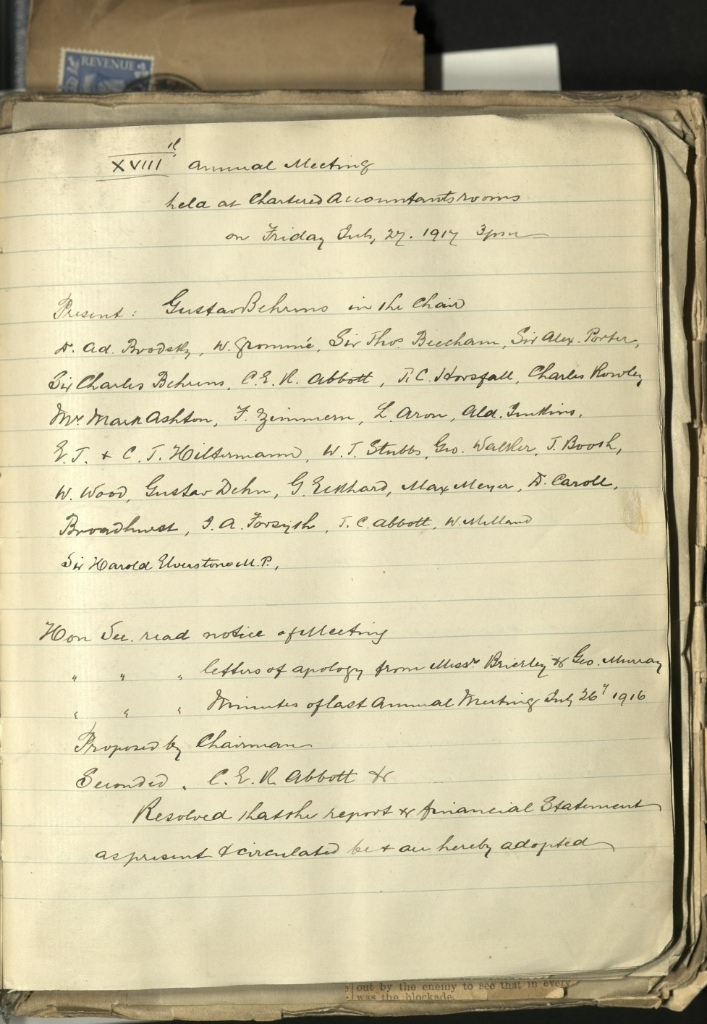 REVENUE
XVIIIth Annual Meeting
held at Chartered Accountants rooms
on Friday July, 27. 1917 3pm
Present: Gustav Behrens in the Chair
Dr. Ad. Brodsky, W. Grommé, Sir Thos. Beecham, Sir Alex. Porter,
Sir Charles Behrens, C.E.R. Abbott, T.C. Horsfall, Charles Rowley
Mr. Mark Ashton, F. Zimmern, L. Aron, Ald. Jenkins,
E.T. & C.T. Hiltermann, W.T. Stubbs, Geo. Walker, J. Boosh,
W. Wood, Gustav Dehn, G. Eckhard, Max Meyer, Dr. Caroll,
Broadhurst, J.A. Forsyth, T.C. Abbott, W. Milland
Sir Harold Elverstone M.P.,
Hon Sec. read notice of Meeting
" " " letters of apology from Messrs Brierley & Geo. Murray
" " " Minutes of last Annual Meeting July 26th 1916
Proposed by Chairman
Seconded " C.E.R. Abbott &
Resolved that the report & financial Statement
as present & circulated be & are hereby adopted
out by the enemy to see that in every
was the blockade.